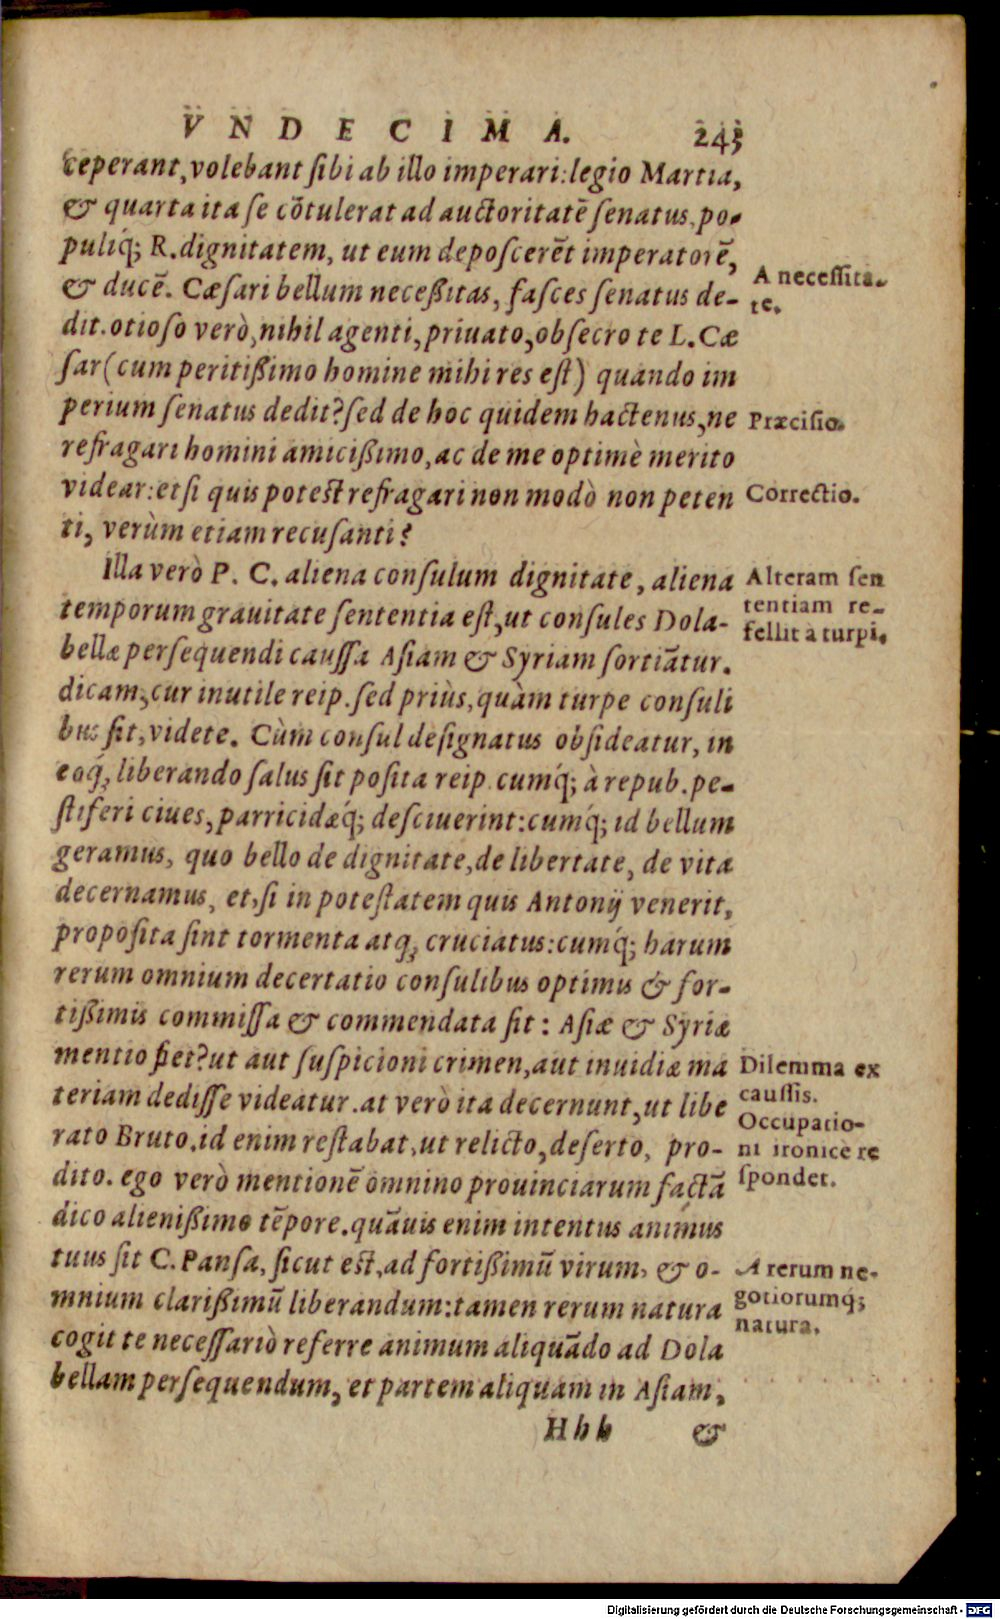 VNDECIMA. 243
ceperant, volebant sibi ab illo imperari: legio Martia,
& quarta ita se cōtulerat ad auctoritatē senatus, po-
puliq́; R. dignitatem, ut eum deposcerēt imperatorē,
& ducē. Cæsari bellum necessitas, fasces senatus de-
dit. otioso verò, nihil agenti, priuato, obsecro te L. Cæ
sar (cum peritissimo homine mihi res est) quando im
perium senatus dedit? sed de hoc quidem hactenus, ne
refragari homini amicissimo, ac de me optimè merito
videar: etsi quis potest refragari non modò non peten
ti, verùm etiam recusanti?
A necessita-
te.
Præcisio.
Correctio.
Illa verò P. C. aliena consulum dignitate, aliena
temporum grauitate sententia est, ut consules Dola-
bellæ persequendi caussa Asiam & Syriam sortiātur.
dicam, cur inutile reip. sed priùs, quàm turpe consuli
bus sit, videte. Cùm consul designatus obsideatur, in
eoq́, liberando salus sit posita reip. cumq́; à repub. pe-
stiferi ciues, parricidæq́; desciuerint: cumq́; id bellum
geramus, quo bello de dignitate, de libertate, de vita
decernamus, et, si in potestatem quis Antonij venerit,
proposita sint tormenta atq, cruciatus: cumq́; harum
rerum omnium decertatio consulibus optimis & for-
tissimis commissa & commendata sit: Asiæ & Syriæ
mentio fiet? ut aut suspicioni crimen, aut inuidiæ ma
teriam dedisse videatur. at verò ita decernunt, ut libe
rato Bruto. id enim restabat, ut relicto, deserto, pro-
dito. ego verò mentionē omnino prouinciarum factā
dico alienissimo tēpore. quāuis enim intentus animus
tuus sit C. Pansa, sicut est, ad fortissimū virum, & o-
mnium clarissimū liberandum: tamen rerum natura
cogit te necessariò referre animum aliquādo ad Dola
bellam persequendum, et partem aliquam in Asiam,
Alteram sen
tentiam re-
fellit à turpi.
Dilemma ex
caussis.
Occupatio-
ni ironicè re
spondet.
A rerum ne-
gotiorumq́;
natura.
Hhh &
Digitalisierung gefördert durch die Deutsche Forschungsgemeinschaft - DFG